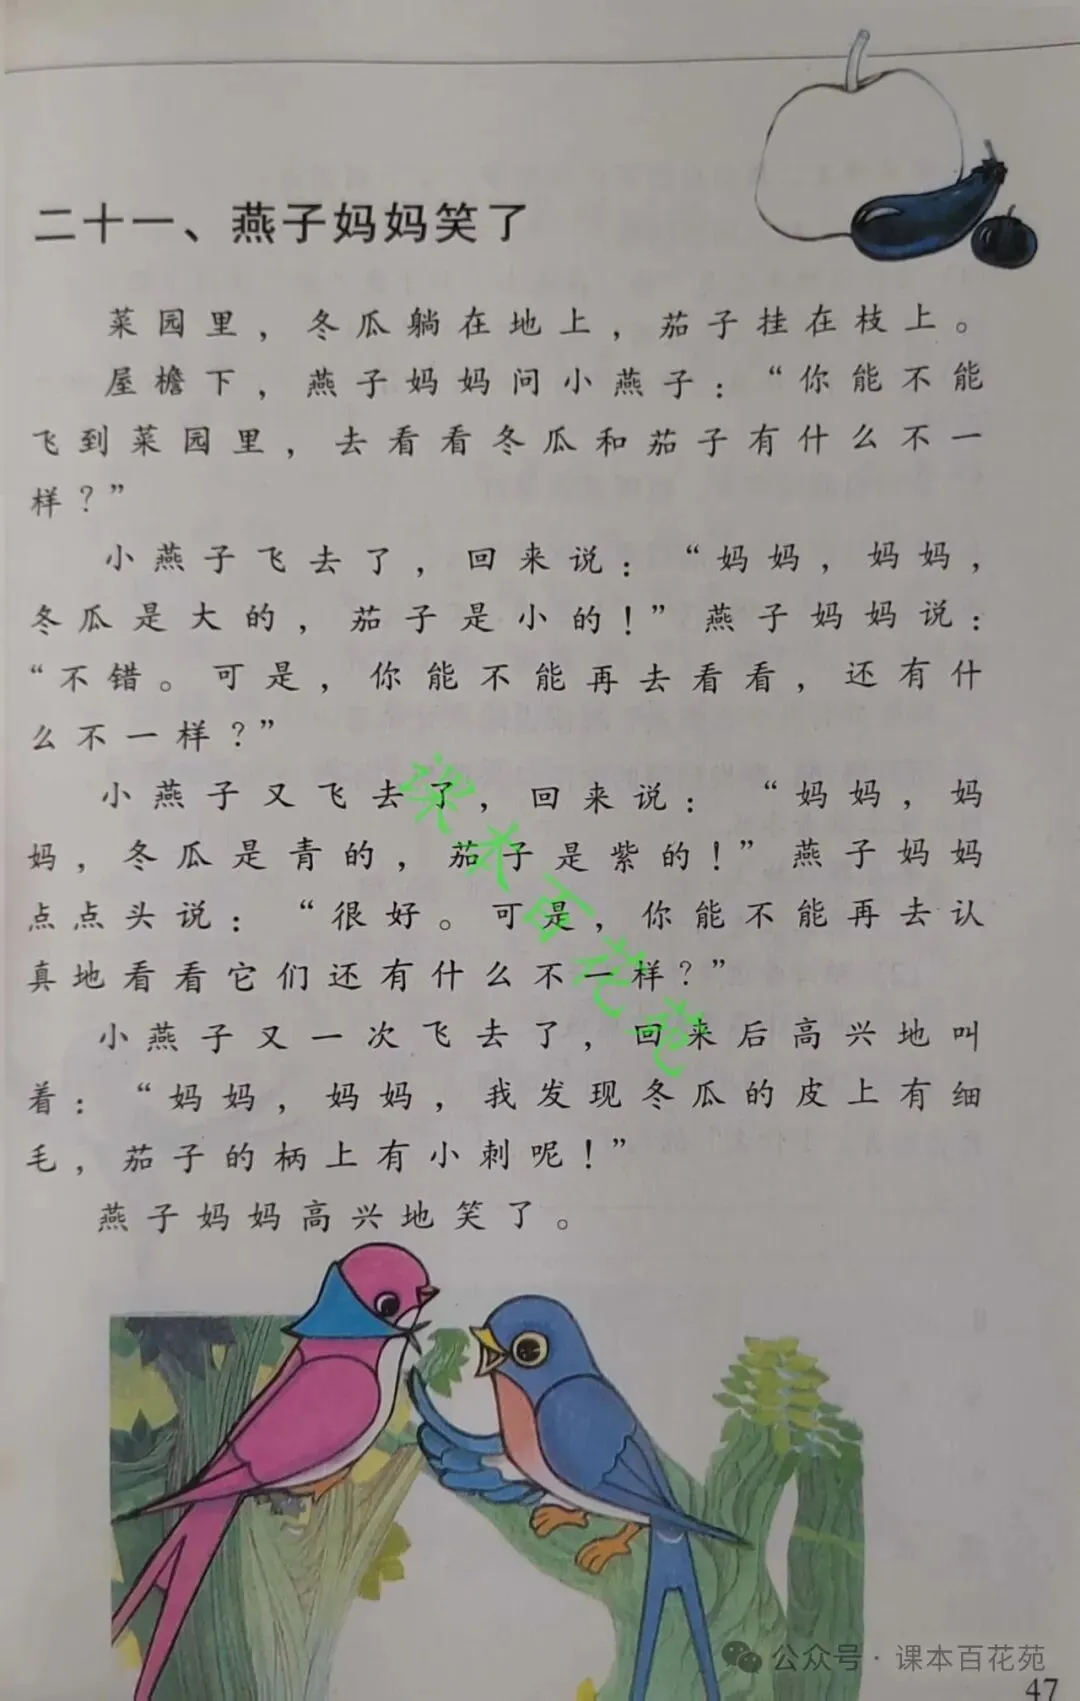 二十一、燕子妈妈笑了
菜园里，冬瓜躺在地上，茄子挂在枝上。
屋檐下，燕子妈妈问小燕子：“你能不能
飞到菜园里，去看看冬瓜和茄子有什么不一
样？”
小燕子飞去了，回来说：“妈妈，妈妈，
冬瓜是大的，茄子是小的！”燕子妈妈说：
“不错。可是，你能不能再去看看，还有什
么不一样？”
小燕子又飞去了，回来说：“妈妈，妈
妈，冬瓜是青的，茄子是紫的！”燕子妈妈
点点头说：“很好。可是，你能不能再去认
真地看看它们还有什么不一样？”
小燕子又一次飞去了，回来后高兴地叫
着：“妈妈，妈妈，我发现冬瓜的皮上有细
毛，茄子的柄上有小刺呢！”
燕子妈妈高兴地笑了。
课本百花苑
公众号·课本百花苑
47